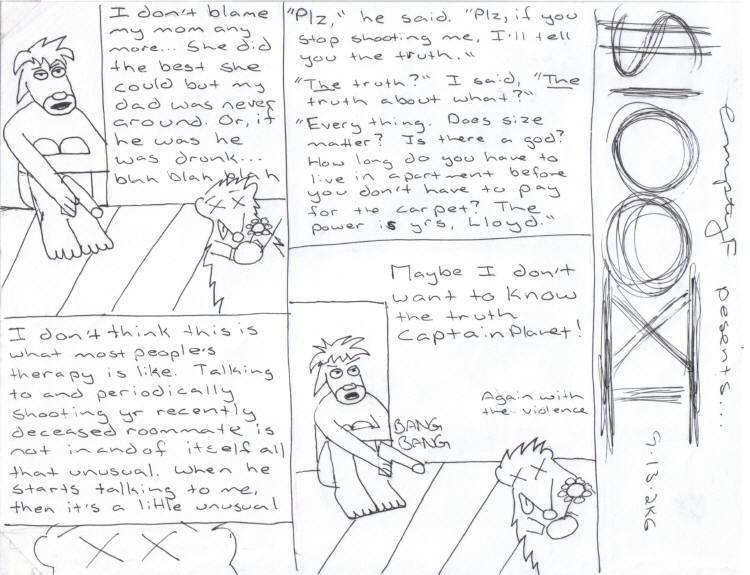 I don't blame
my mom any
more... She did
the best she
could but my
dad was never
around. Or, if
he was he
was drunk...
blah blah blah
"Plz," he said. "Plz, if you
stop shooting me, I'll tell
you the truth."
"The truth?" I said, "The
truth about what?"
"Every thing. Does size
matter? Is there a god?
How long do you have to
live in apartment before
you don't have to pay
for the carpet? The
power is yrs, Lloyd."
I don't think this is
what most people's
therapy is like. Talking
to and periodically
shooting yr recently
deceased roommate is
not in and of itself all
that unusual. When he
starts talking to me,
then it's a little unusual
Maybe I don't
want to know
the truth
Captain Planet!
Again with
the violence
BANG
BANG
emptyF pesents...
9.13.2K6